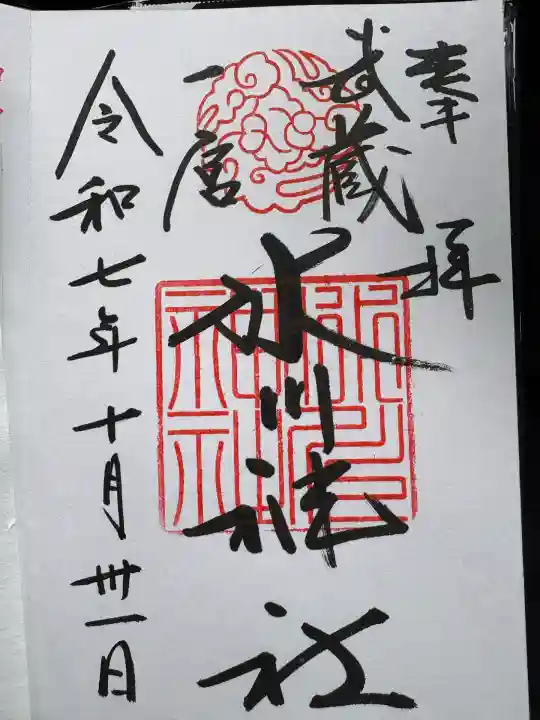 奉拝
武蔵
一宮
氷川神社
令和七年十月卅一日